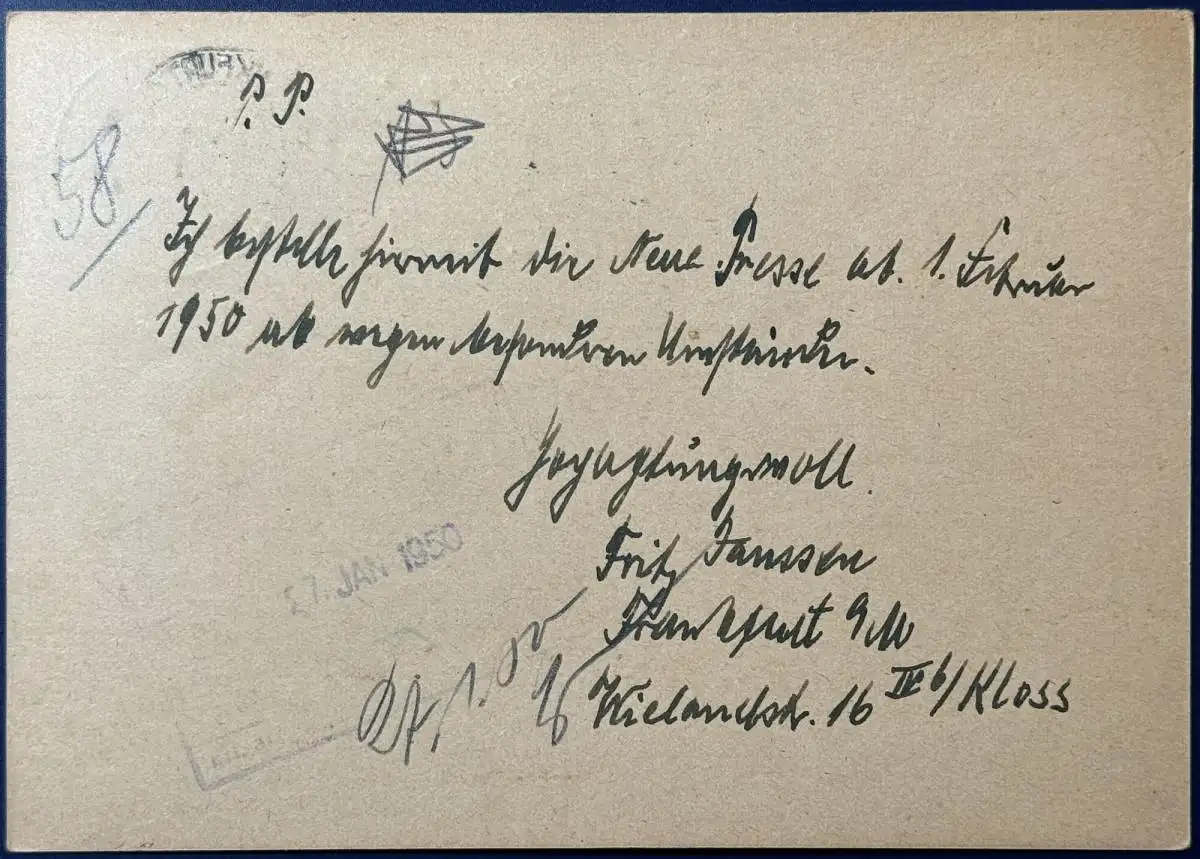 P. P.
58
Ich bestelle hiermit die Neue Presse ab. 1. Februar
1950 ab wegen besonderen Umstände.
Hochachtungsvoll.
27. JAN 1950
Fritz Janssen
Frankfurt a/M
Wielandstr. 16 IV b/Kloss